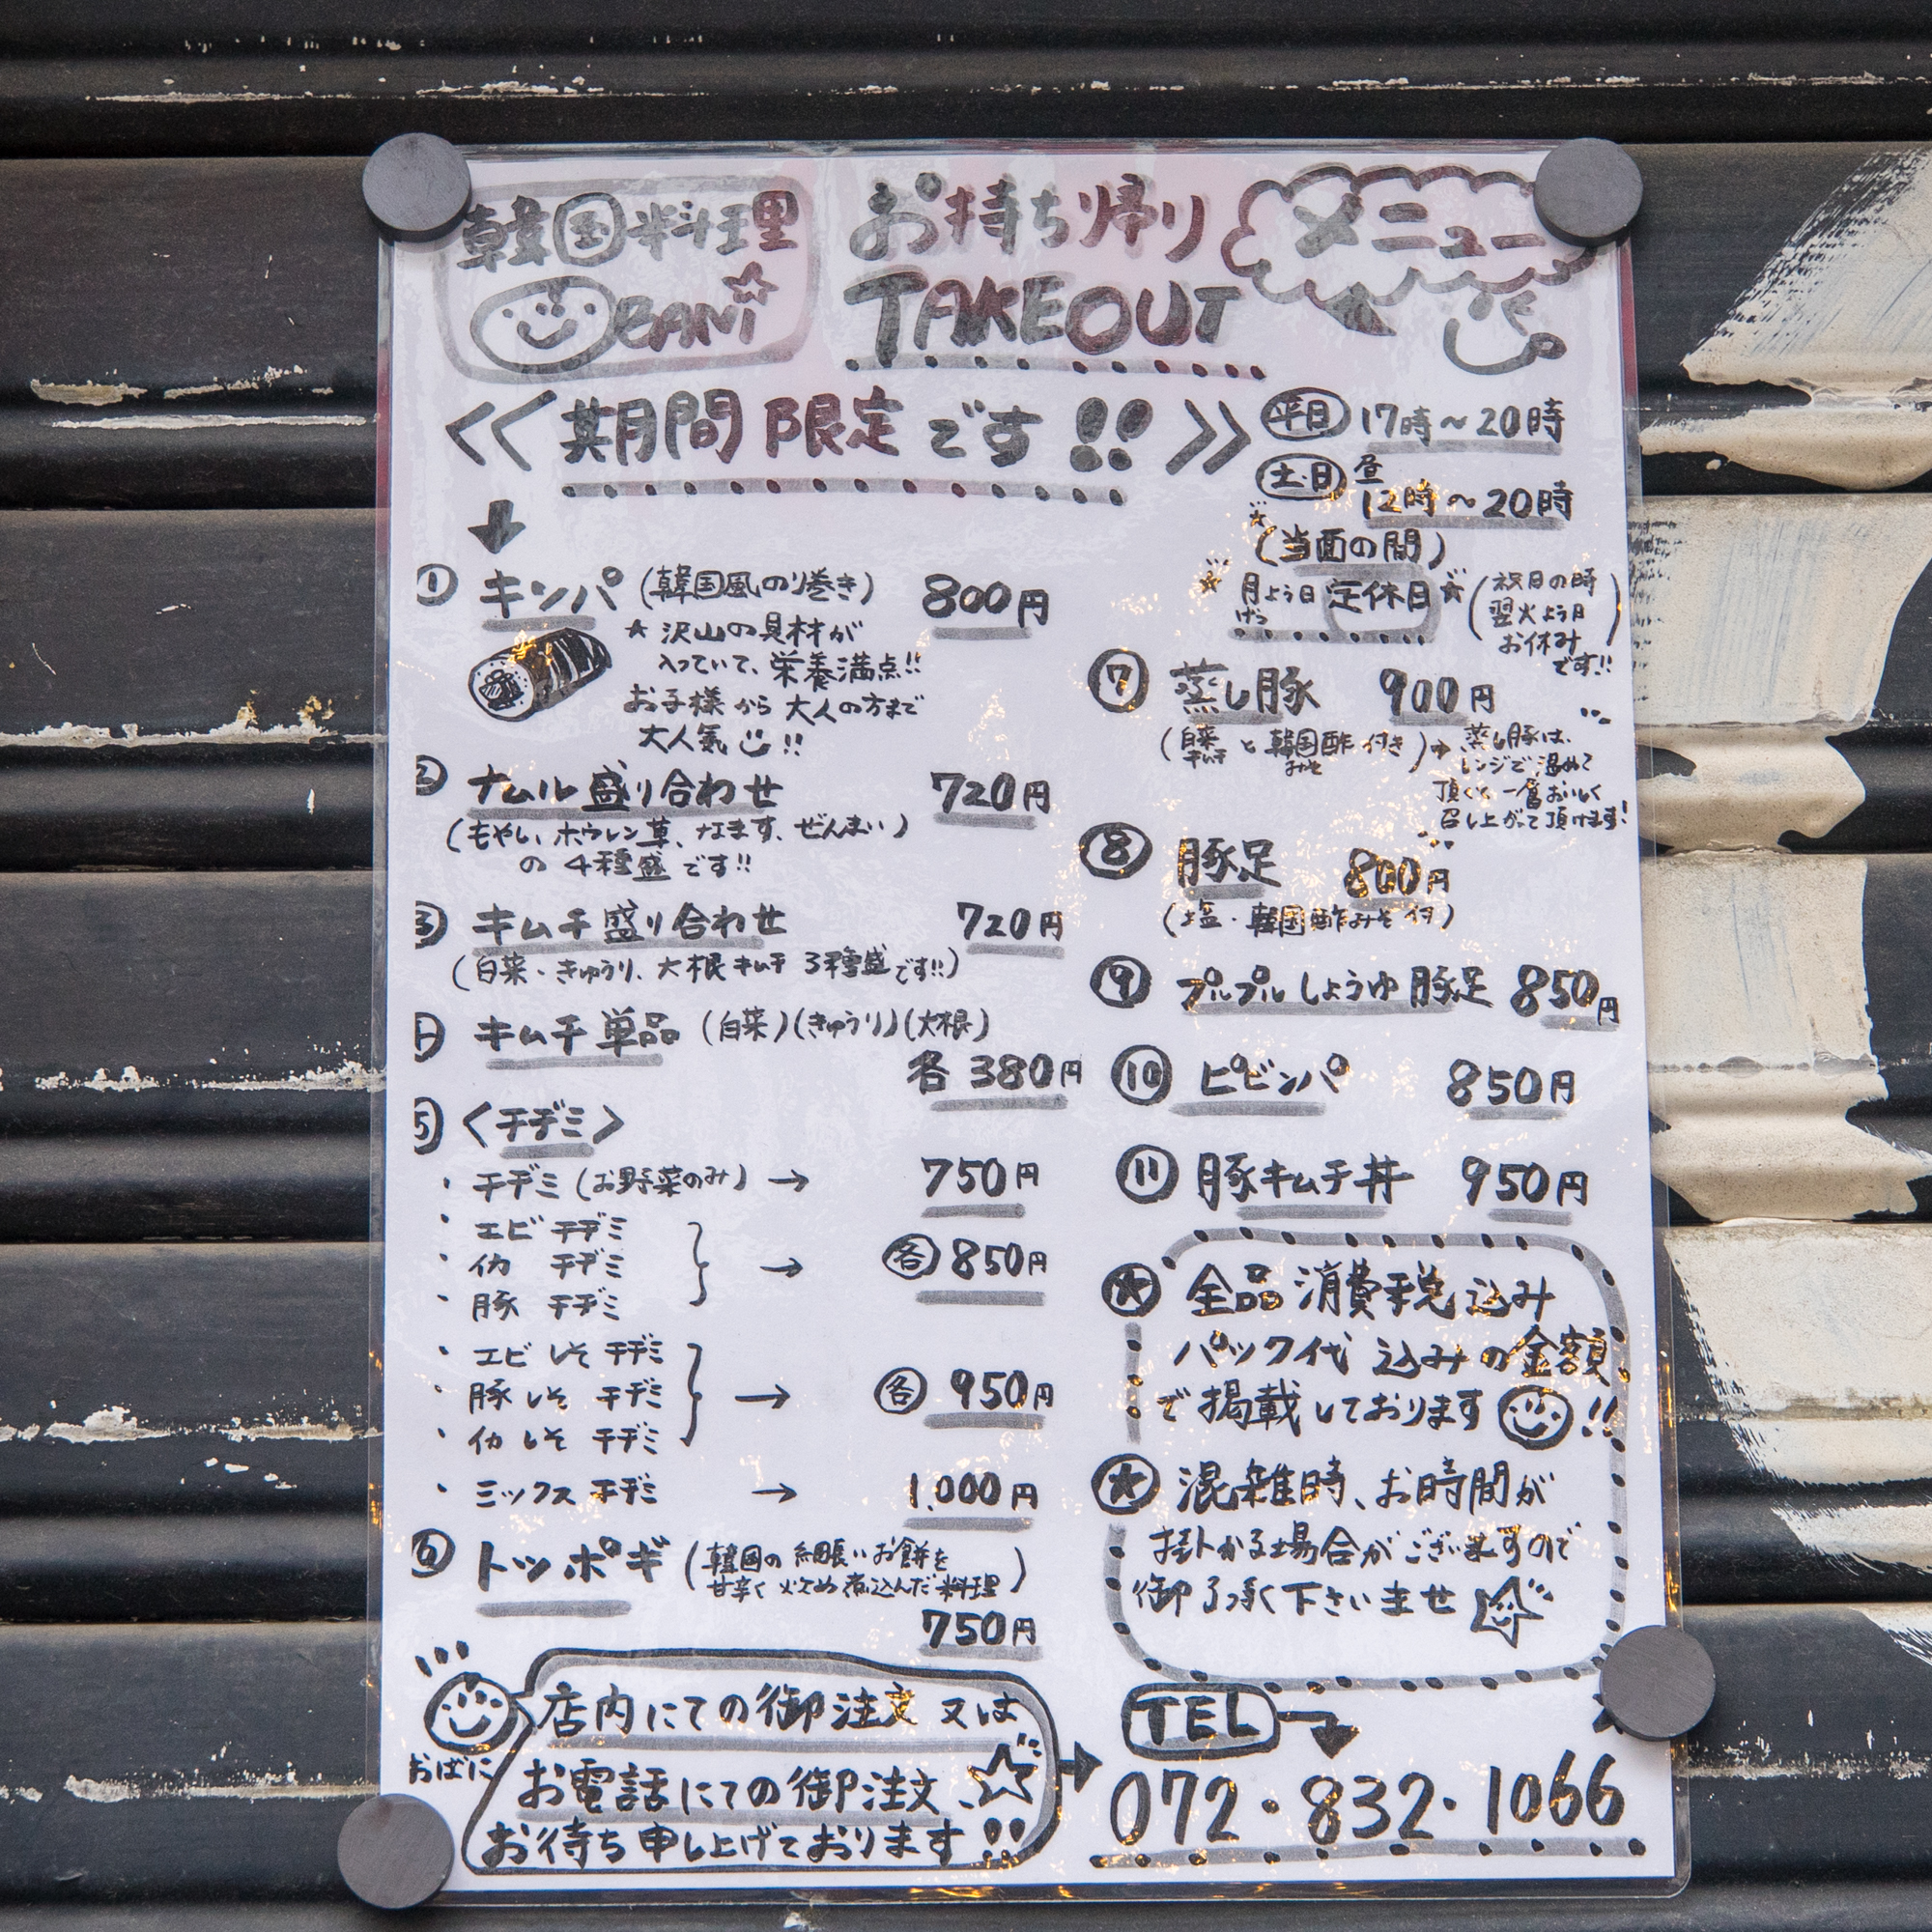 韓国料理
OBANi
お持ち帰り
TAKEOUT
メニュー
<<期間限定です!!>>
平日 17時〜20時
土・日 昼12時〜20時
(当面の間)
月よう日 定休日
げつ
(祝日の時
翌火よう日
お休み
です!!)
① キンパ (韓国風のり巻き) 800円
★沢山の具材が
入っていて、栄養満点!!
お子様から大人の方まで
大人気!!
② ナムル盛り合わせ 720円
(もやし、ホウレン草、なます、ぜんまい)
の4種盛です!!
③ キムチ盛り合わせ 720円
(白菜・きゅうり、大根キムチ3種盛です!!)
④ キムチ単品 (白菜)(きゅうり)(大根)
各380円
⑤ <チヂミ>
・チヂミ(お野菜のみ) → 750円
・エビ チヂミ
・イカ チヂミ → 各850円
・豚 チヂミ
・エビしそチヂミ
・豚しそチヂミ → 各950円
・イカしそチヂミ
・ミックスチヂミ → 1,000円
⑥ トッポギ (韓国の細長いお餅を
甘辛く炒め煮込んだ料理)
750円
⑦ 蒸し豚 900円
(白菜キムチと韓国酢みそ付き)⇒蒸し豚は、
レンジで温めて
頂くと一番おいしく
召し上がって頂けます!
⑧ 豚足 800円
(塩・韓国酢みそ付)
⑨ プルプルしょうゆ豚足 850円
⑩ ピビンパ 850円
⑪ 豚キムチ丼 950円
★ 全品消費税込み
パック代込みの金額
で掲載しております!!
★ 混雑時、お時間が
掛かる場合がございますので
御了承下さいませ
おばに
店内にての御注文又は
お電話にての御注文、
お待ち申し上げております!!
TEL
072・832・1066